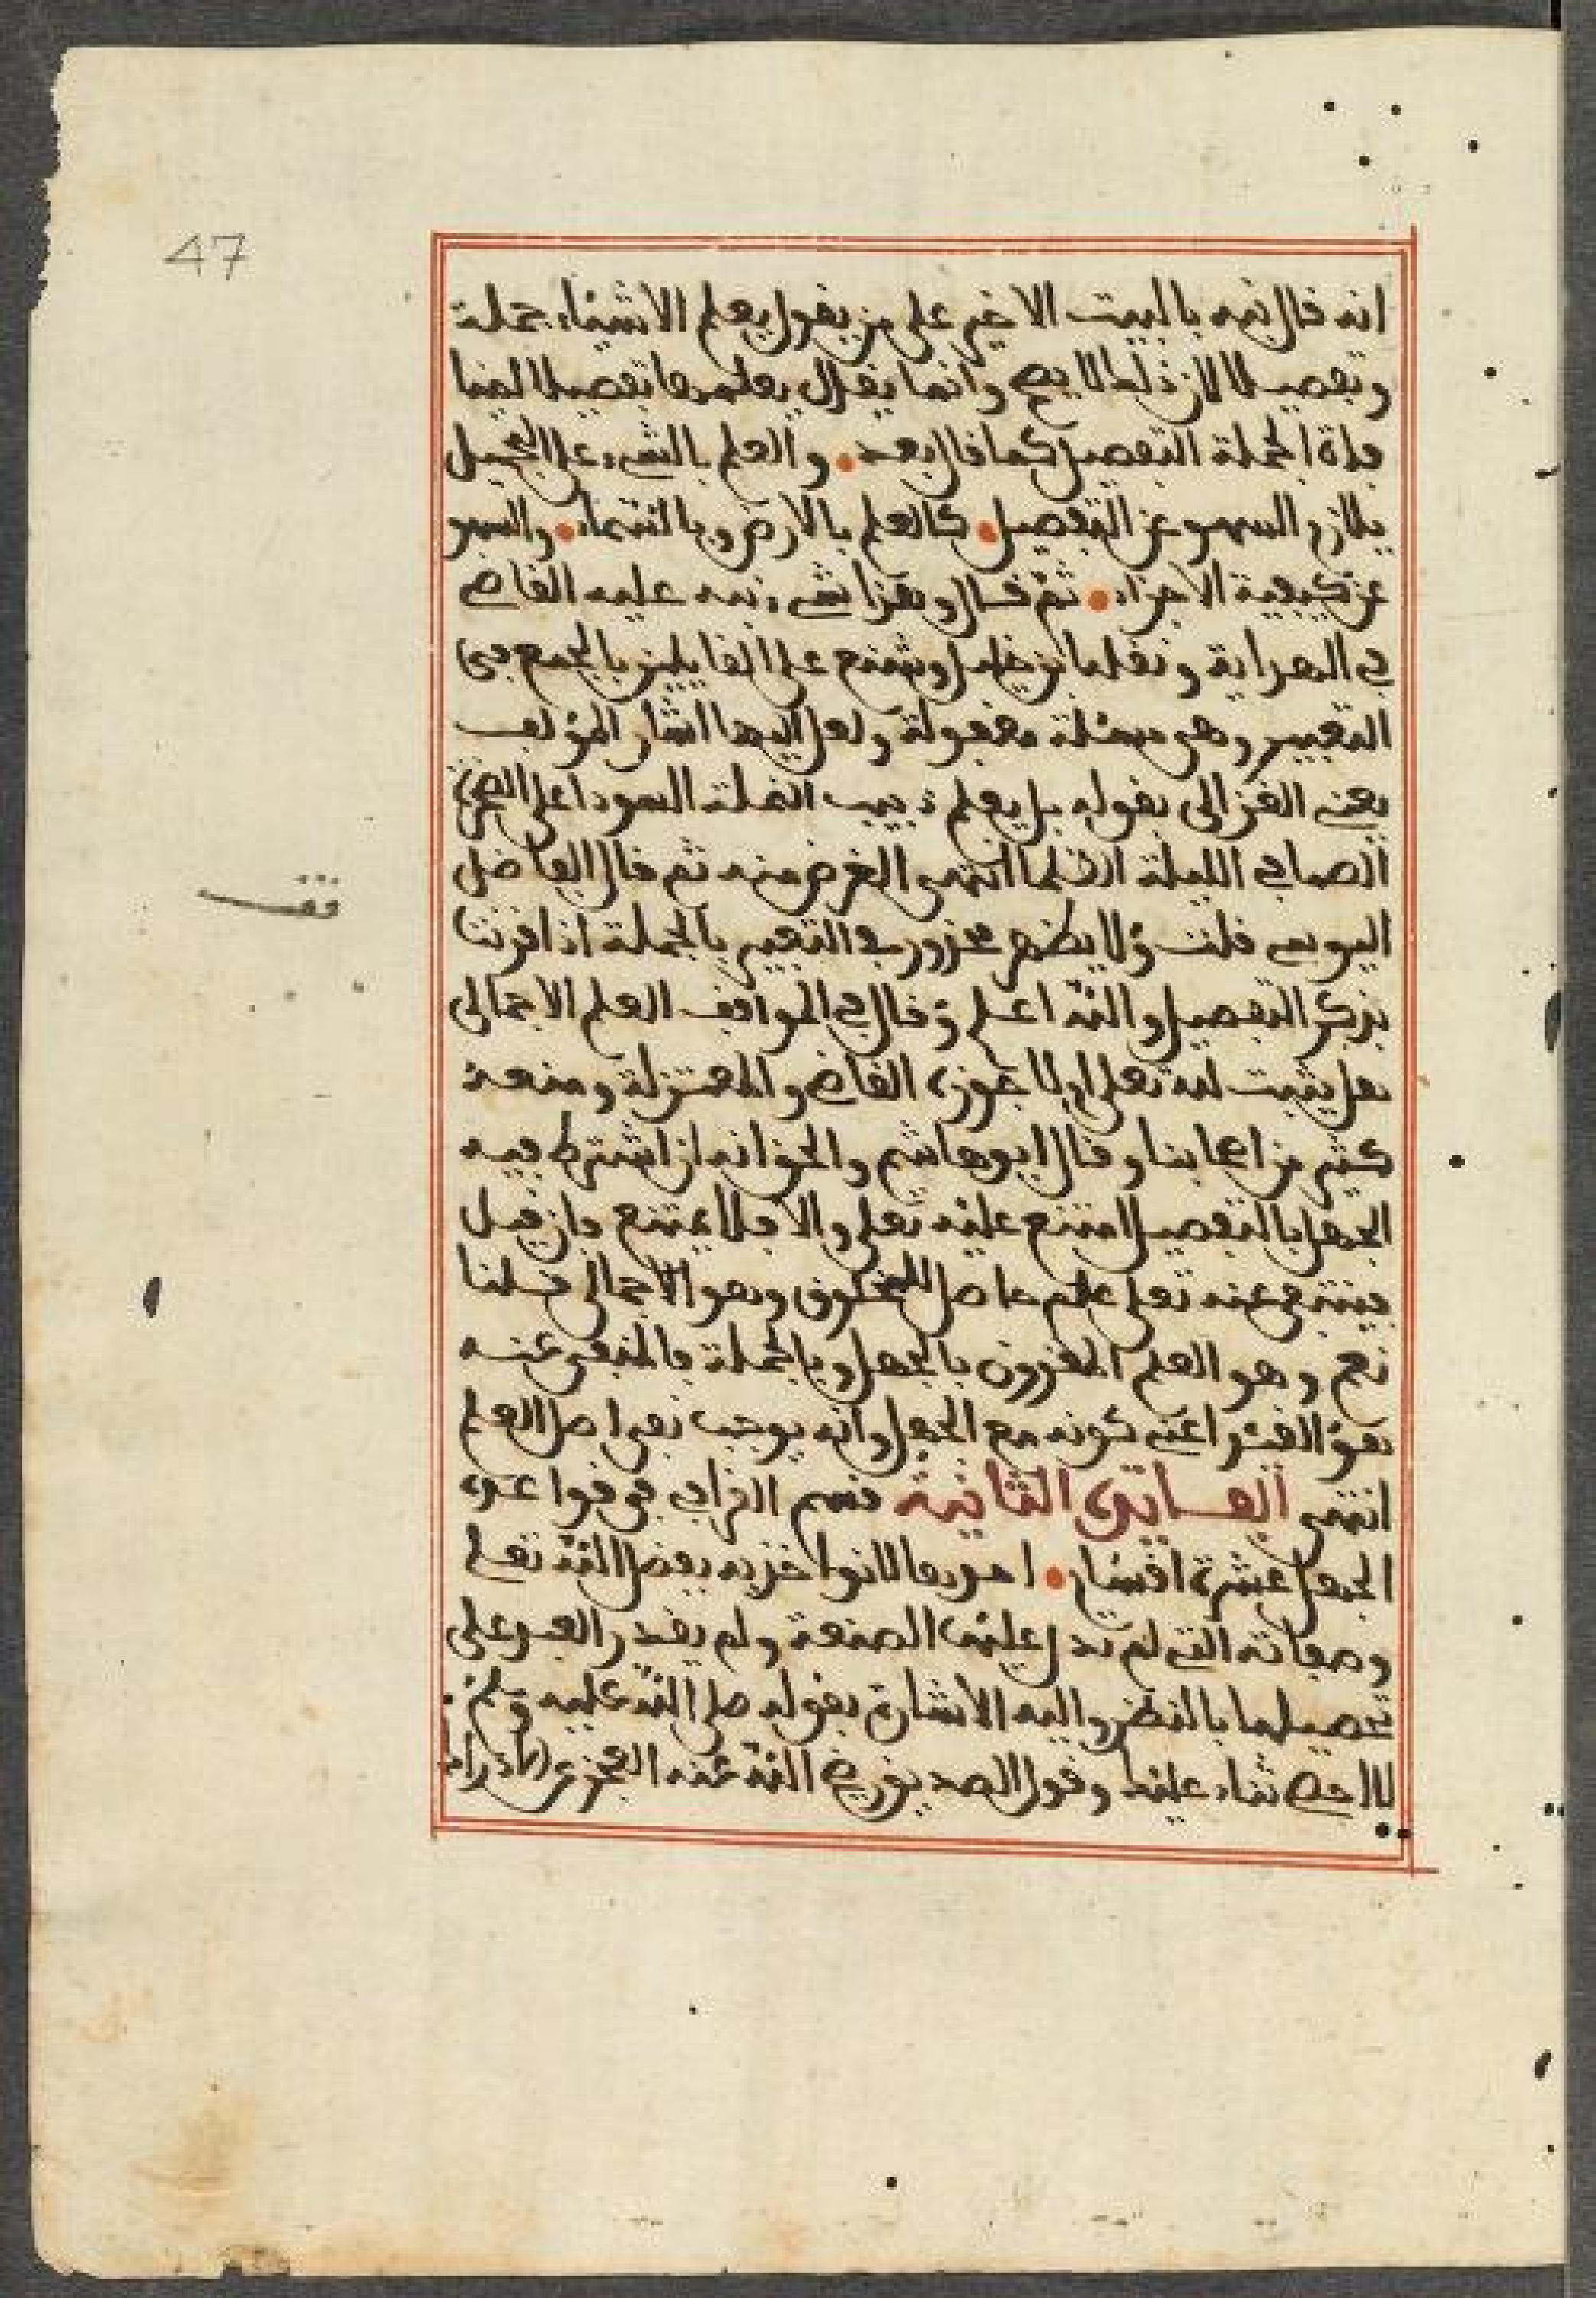 47
انه قال نبه بالبيت الاخير على من يقول يعلم الاشياء جملة
وتفصيلا لان ذلك لا يصح وانما يقال يعلمها تفصيلا لمنا
فاة الجملة التفصيل كما قال بعد • والعلم بالشيء على التجميل
يلازم السهو عن التفصيل • كالعلم بالارض وبالسماء • والسهو
عن كيفية الاجزاء • ثم قال وهذا شيء نبه عليه القاضي
في الهداية ونقله ابن خليل وشنع على القايلين بالجمع في
التعبير وهي مسئلة مغفولة ولعل اليها اشار المؤلف
يعني الغزالي بقوله بل يعلم دبيب النملة السودا على الصخرة
الصما في الليلة الظلما انتهى الغرض منه ثم قال الفاضل
اليوسي قلت ولا يظهر محذور في التعبير بالجملة اذا قرنت
بذكر التفصيل والله اعلم وقال في المواقف العلم الاجمالي
هل يثبت لله تعلى او لا جوزه القاضي والمعتزلة ومنعه
كثير من اصحابنا وقال ابو هاشم والحق انه ان اشترط فيه
الجهل بالتفصيل امتنع عليه تعلى والا فلا يمتنع فان قيل
فينتفي عنه تعلى علم حاصل للمخلوق وهو الاجمالي قلنا
نعم وهو العلم المقرون بالجهل وبالجملة فالمنفي عنه
هو القيد اعني كونه مع الجهل وانه يوجب نفي اصل العلم
انتهى الفايدة الثانية قسم القرافي في فروقه
الجهل عشرة اقسام • احدها لا نواخذ به ببعض الله تعلى
وصفاته التي لم تدل عليها الصنعة ولم يقدر العبد على
تحصيلها بالنظر واليه الاشارة بقوله صلى الله عليه وسلم
لا احصي ثناء عليك وقول الصديق رضي الله عنه العجز عن الادراك
قف